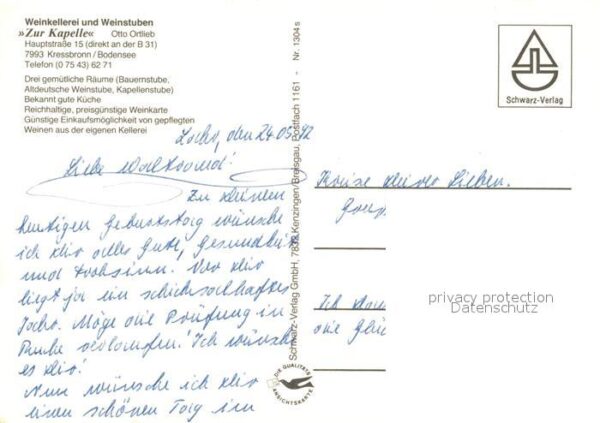 Weinkellerei und Weinstuben
»Zur Kapelle« Otto Ortlieb
Hauptstraße 15 (direkt an der B 31)
7993 Kressbronn / Bodensee
Telefon (0 75 43) 62 71
Drei gemütliche Räume (Bauernstube,
Altdeutsche Weinstube, Kapellenstube)
Bekannt gute Küche
Reichhaltige, preisgünstige Weinkarte
Günstige Einkaufsmöglichkeit von gepflegten
Weinen aus der eigenen Kellerei
den 24.05.92
Liebe Waltraud!
Zu deinem
heutigen Geburtstag wünsche
ich dir alles Gute, Gesundheit
und Frohsinn. Vor dir
liegt ja ein schicksalhaftes
Jahr. Möge die Prüfung in
Ruhe verlaufen! Ich wünsche
es dir!
Nun wünsche ich dir
einen schönen Tag im
Schwarz-Verlag GmbH, 7832 Kenzingen/Breisgau, Postfach 1161 - Nr. 1304 s
DIE QUALITÄTS
ANSICHTSKARTE
Schwarz-Verlag
Kreise deiner Lieben.
Ich
die
privacy protection
Datenschutz